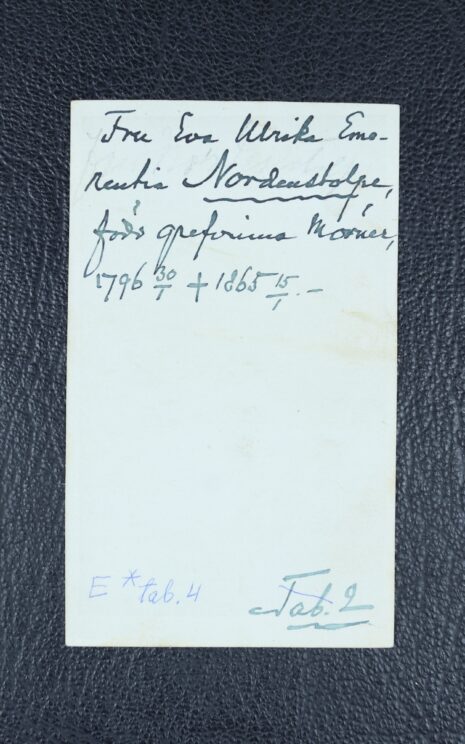 Fru Eva Ulrika Eme-
rentia Nordenstolpe,
född grefvinna Mörner,
1796 30/1 + 1865 15/1. –
E * tab. 4
Tab. 2